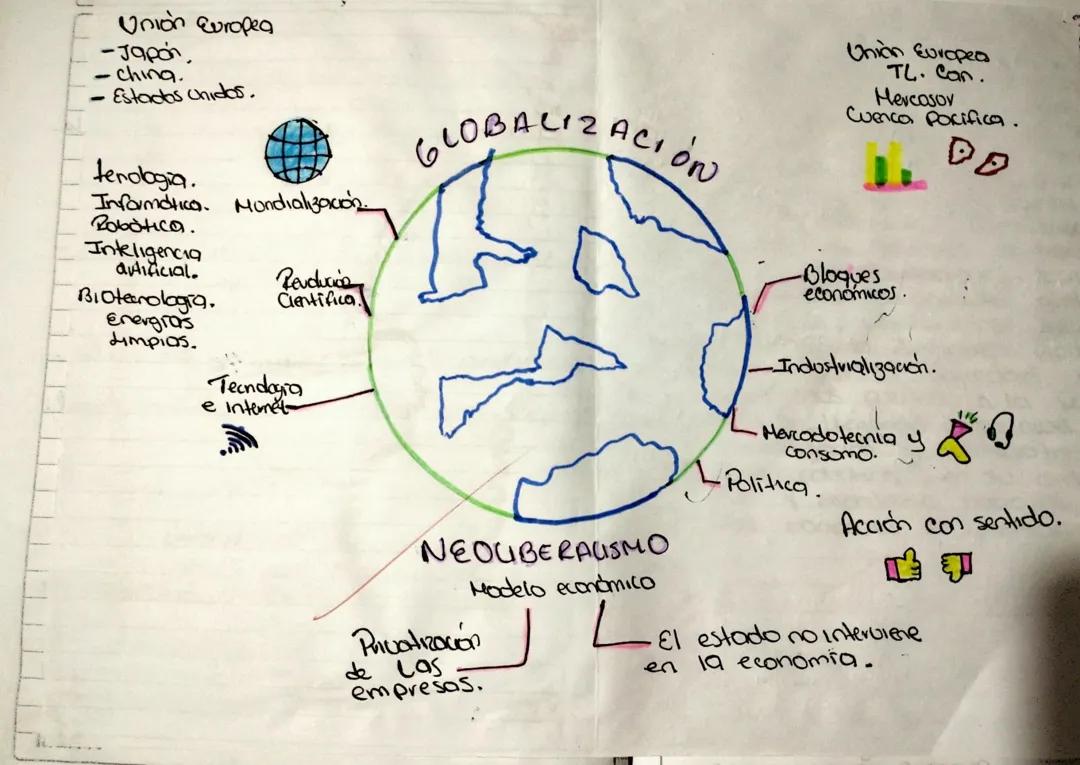 Unión Europea
- Japón.
- china.
- Estados Unidos.
Unión Europea
TL. Can.
Mercosor
Cuenca Pacífica.
GLOBALIZACIÓN
tenología.
Informática.
Robótica.
Inteligencia
artificial.
BIOtenología.
Energías
Limpias.
Mondialización.
Revolución
Científica.
Tecnología
e internet
Bloques
económicos.
Industrialización.
Mercadotecnia y
consumo.
Política.
Acción con sentido.
NEOLIBERALISMO
Modelo económico
Privatización
de Las
empresas.
El estado no interviene
en la economía.